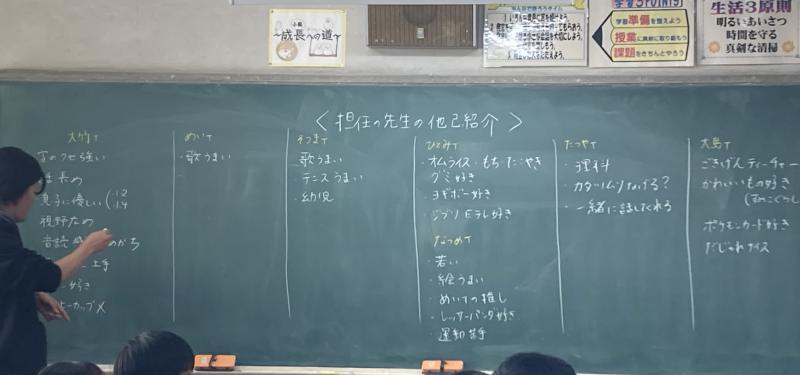 〜成長への道〜
学習3POINTS
学習準備を整えよう
授業に真剣に取り組もう
課題をきちんとやろう
生活3原則
明るいあいさつ
時間を守る
真剣な清掃
＜担任の先生の他己紹介＞
大竹T
字のクセ強い
長め
息子に優しい
12
14
視野広め
音読
がち
上手
好き
カップ×
めいT
・歌うまい
そうまT
・歌うまい
・テニスうまい
・幼児
ひとみT
・オムライス・もち・たこやき
グミ好き
・ヨギボー好き
・ジブリ Eテレ好き
なつめT
・若い
・絵うまい
・めいTの推し
・レッサーパンダ好き
・運動苦手
たつやT
・理科
・カタツムリなげる?
・一緒に話してくれる
大島T
ごきげんティーチャー
かわいいもの好き
ポケモンカード好き
だじゃれナイス